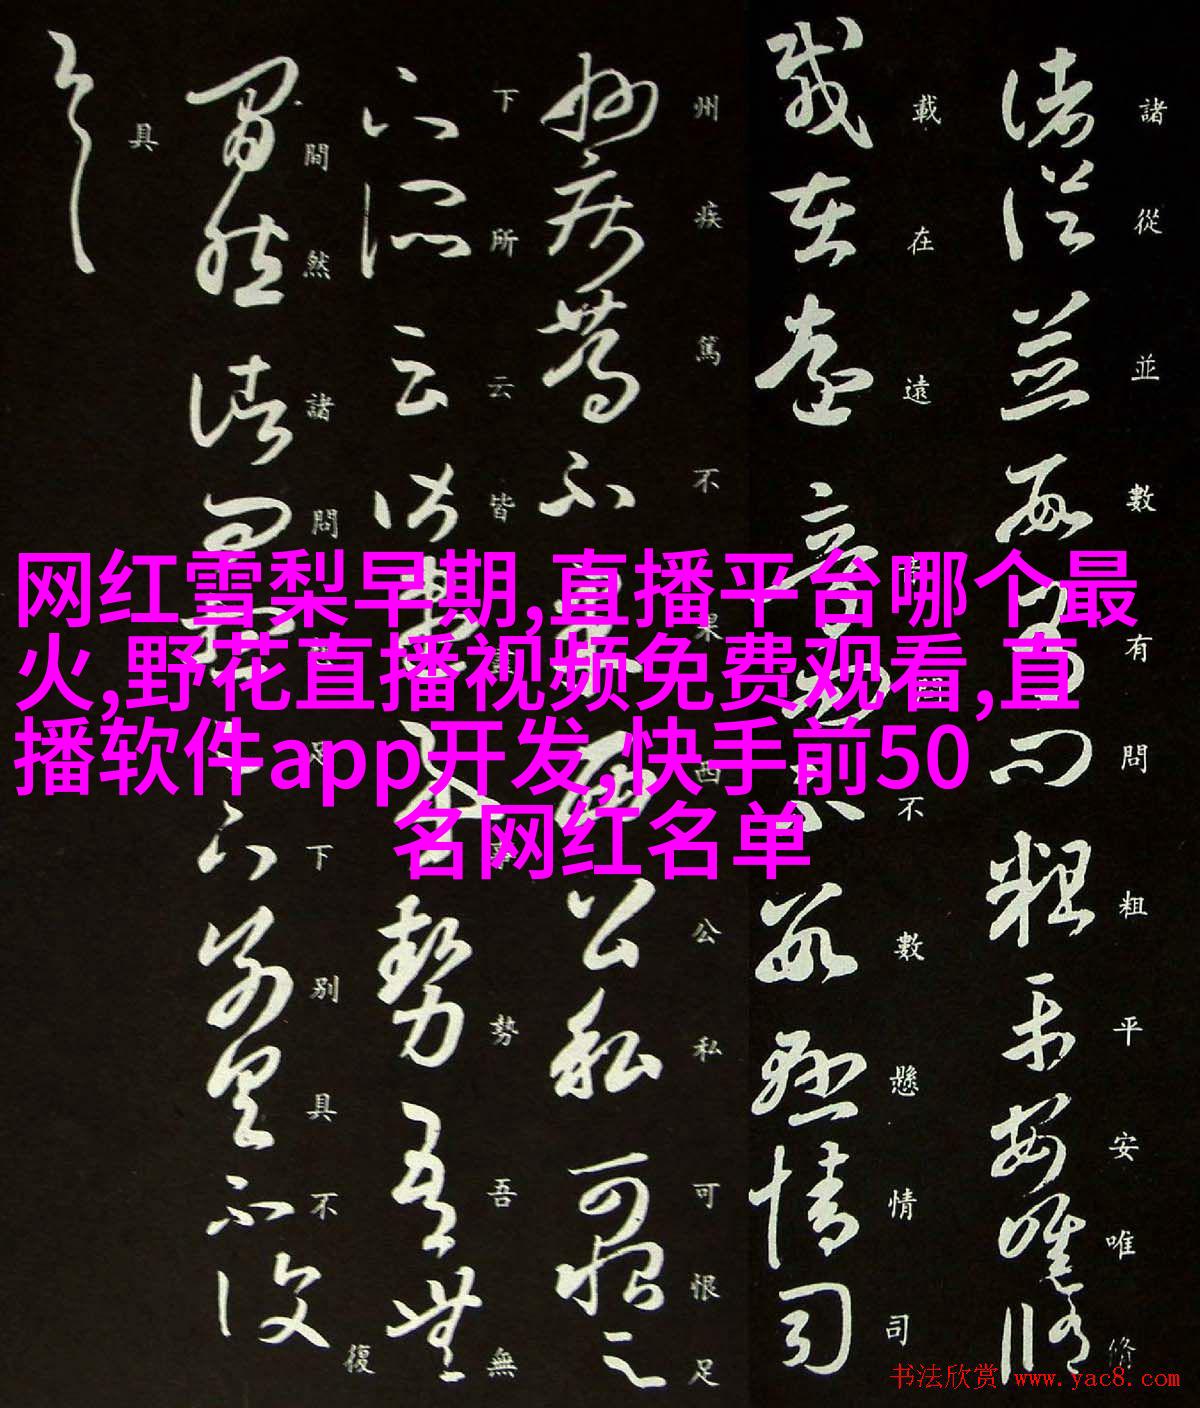 諸從並數有問粗平安唯修
載在遠音問不數懸情司
州疾篤不果西公私可恨足
下所云皆盡事勢吾無
間然諸問想足下別具不復
具
网红雪梨早期,直播平台哪个最
火,野花直播视频免费观看,直
播软件app开发,快手前50
名网红名单
书法欣赏 www.yac8.com